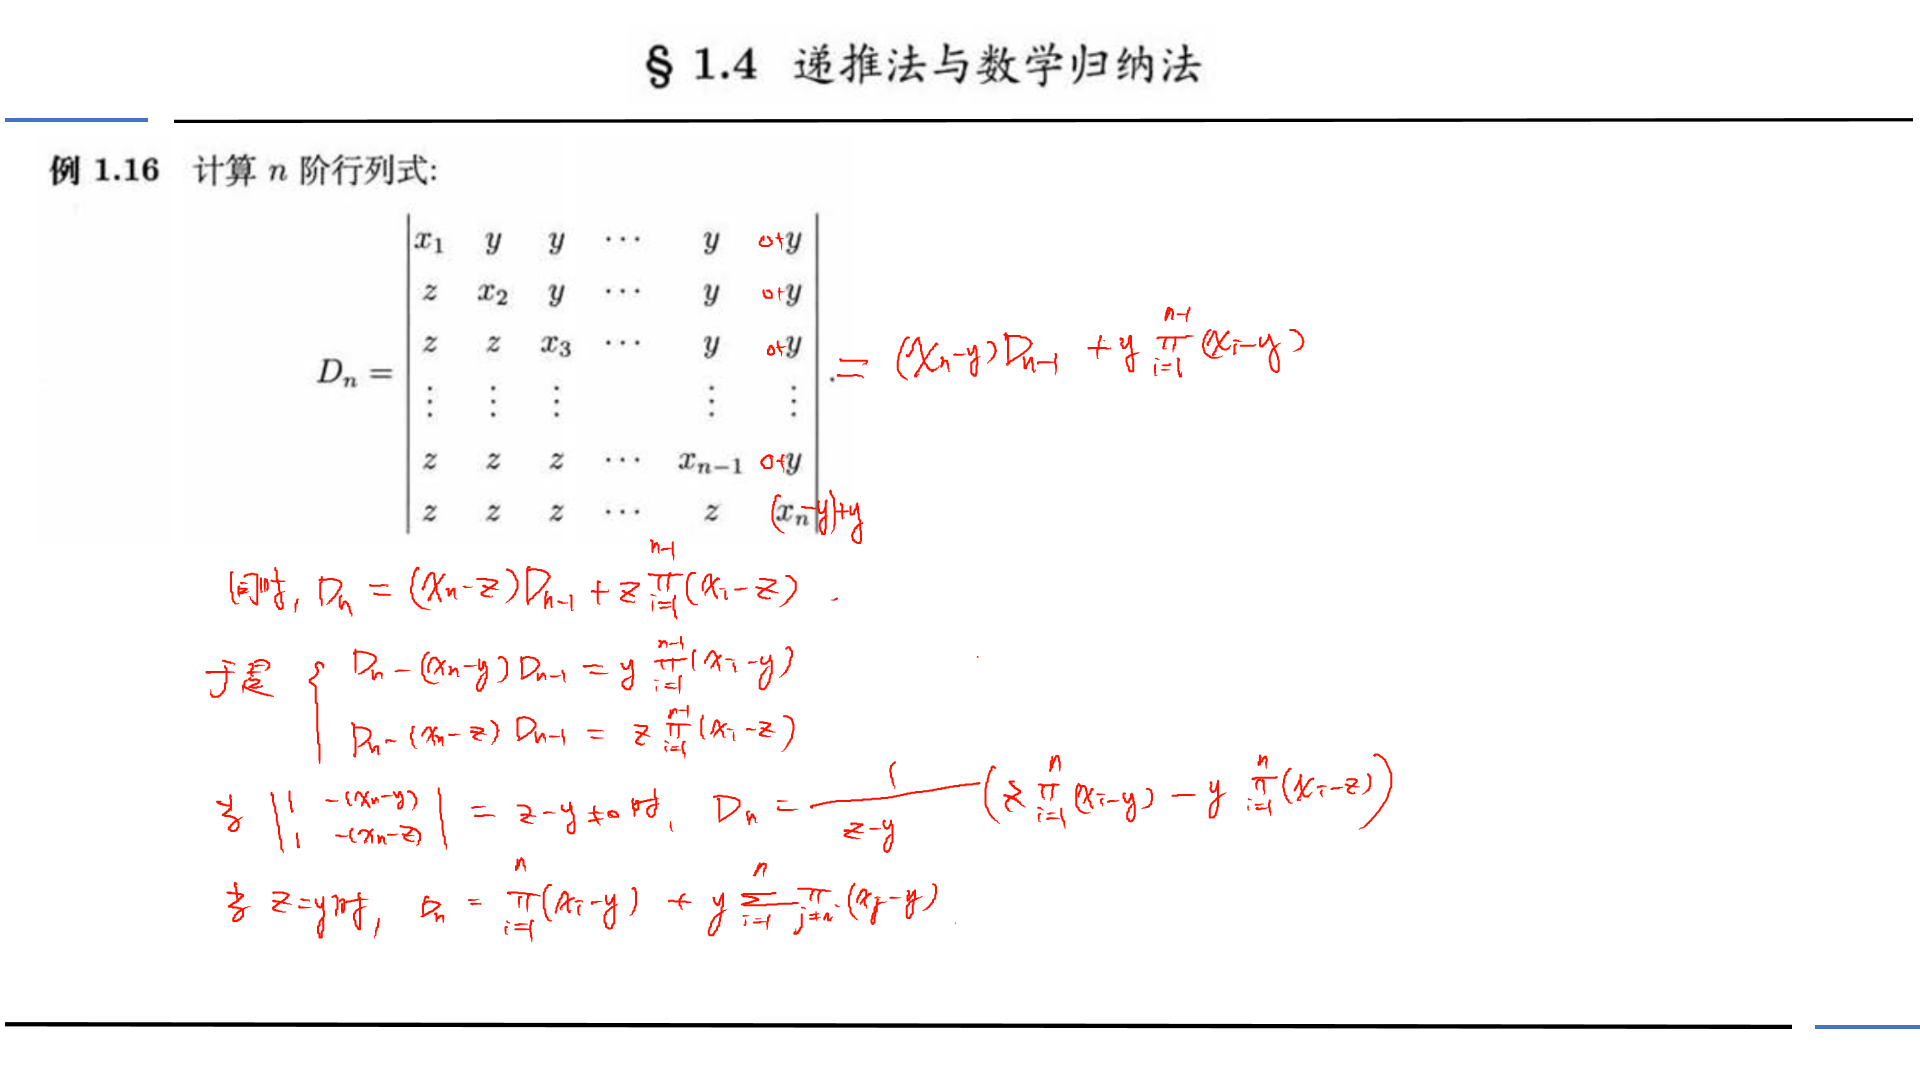 § 1.4 递推法与数学归纳法
例 1.16 计算 n 阶行列式:
x₁ y y ⋯ y 0+y
z x₂ y ⋯ y 0+y
z z x₃ ⋯ y 0+y
Dₙ = ⋮ ⋮ ⋮ ⋮ ⋮ . = (xₙ-y)Dₙ₋₁ + y ∏_{i=1}^{n-1} (xᵢ-y)
z z z ⋯ xₙ₋₁ 0+y
z z z ⋯ z (xₙ-y)+y
同时, Dₙ = (xₙ-z)Dₙ₋₁ + z ∏_{i=1}^{n-1} (xᵢ-z) .
于是 { Dₙ - (xₙ-y) Dₙ₋₁ = y ∏_{i=1}^{n-1} (xᵢ-y)
Dₙ - (xₙ-z) Dₙ₋₁ = z ∏_{i=1}^{n-1} (xᵢ-z)
当 | 1 -(xₙ-y) ; 1 -(xₙ-z) | = z-y ≠0 时, Dₙ = 1/(z-y) ( z ∏_{i=1}^{n} (xᵢ-y) - y ∏_{i=1}^{n} (xᵢ-z) )
当 z=y时, Dₙ = ∏_{i=1}^{n} (xᵢ-y) + y ∑_{i=1}^{n} ∏_{j≠i} (xⱼ-y)